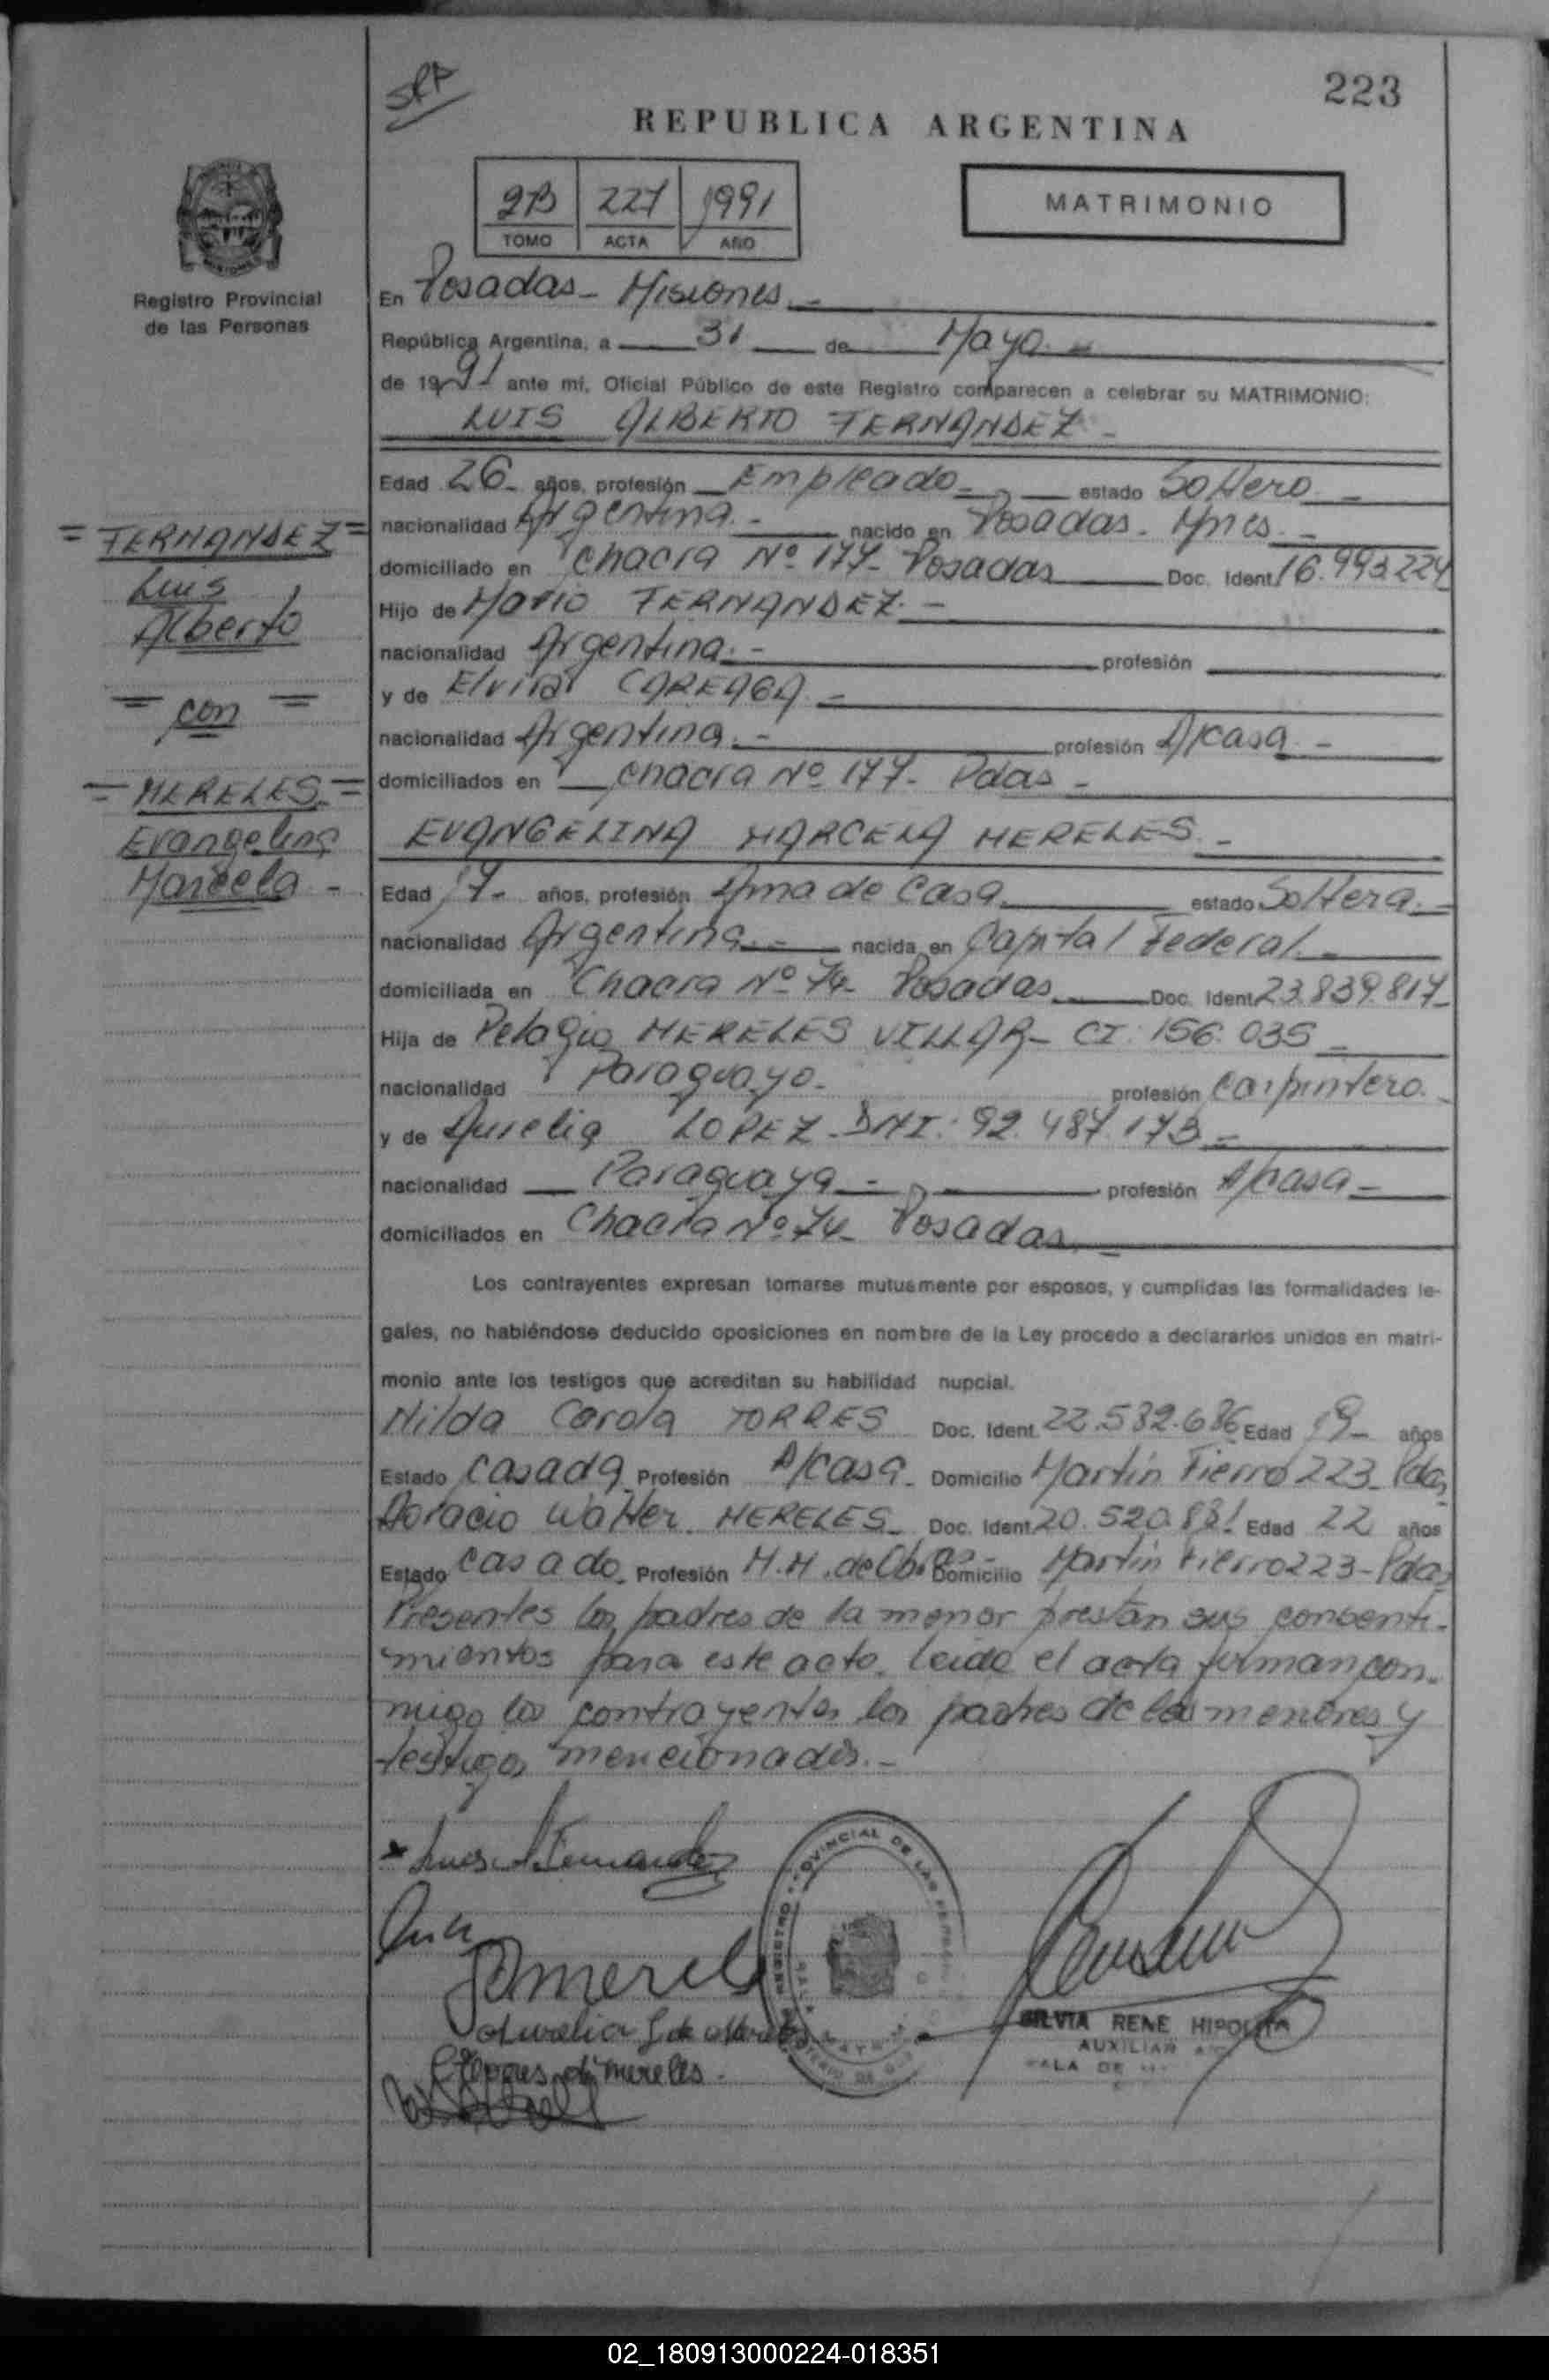 223
SRP
REPUBLICA ARGENTINA
2B 227 1991
TOMO ACTA AÑO
MATRIMONIO
Registro Provincial
de las Personas
En Posadas - Misiones. -
República Argentina, a 31 de Mayo. -
de 1991 ante mí, Oficial Público de este Registro comparecen a celebrar su MATRIMONIO:
LUIS ALBERTO FERNANDEZ -
Edad 26- años, profesión Empleado - estado Soltero. -
= FERNANDEZ =
Luis
Alberto
= con =
= MERELES. =
Evangelina
Marcela -
nacionalidad Argentina. - nacido en Posadas - Mnes. -
domiciliado en Chacra Nº 177- Posadas Doc. Ident. 16.993.224
Hijo de Mario FERNANDEZ. -
nacionalidad Argentina. - profesión
y de Elvira CAREAGA. -
nacionalidad Argentina. - profesión A/casa -
domiciliados en Chacra Nº 177- Pdas -
EVANGELINA MARCELA MERELES. -
Edad 17- años, profesión Ama de Casa estado Soltera. -
nacionalidad Argentina. - nacida en Capital Federal. -
domiciliada en Chacra Nº 74- Posadas Doc. Ident. 23.839.817-
Hija de Pelagio MERELES VILLAR - CI: 156.035 -
nacionalidad Paraguayo. profesión Carpintero.
y de Aurelia LOPEZ - DNI: 92.487.173 -
nacionalidad Paraguaya - profesión A/casa -
domiciliados en Chacra Nº 74- Posadas
Los contrayentes expresan tomarse mutuamente por esposos, y cumplidas las formalidades le-
gales, no habiéndose deducido oposiciones en nombre de la Ley procedo a declararlos unidos en matri-
monio ante los testigos que acreditan su habilidad nupcial.
Nilda Carola TORRES Doc. Ident. 22.582.686 Edad 19- años
Estado Casada Profesión A/casa - Domicilio Martín Fierro 223 - Pdas
Horacio Walter MERELES - Doc. Ident. 20.520.831 Edad 22 años
Estado Casado. Profesión M.M. de Obras - Domicilio Martín Fierro 223 - Pdas
Presentes los padres de la menor prestan sus consenti-
mientos para este acto. Leída el acta firman con-
migo los contrayentes los padres de los menores y
testigos mencionados. -
REGISTRO PROVINCIAL DE LAS
SILVIA RENE HIPOLITA
AUXILIAR
SALA DE
02_180913000224-018351